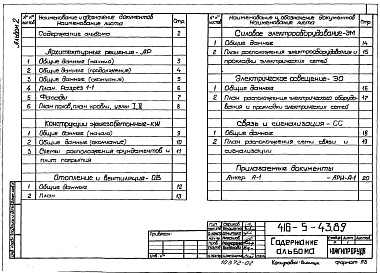 Альбом 2
№№ листов
Наименование и обозначение документов
Наименование листа
Стр.
Содержание альбома 2
Архитектурные решения - АР
1 Общие данные (начало) 3
2 Общие данные (продолжение) 4
3 Общие данные (окончание) 5
4 План. Разрез 1-1 6
5 Фасады 7
6 План полов, план кровли, узлы I, II 8
Конструкции железобетонные - КЖ
1 Общие данные (начало) 9
2 Общие данные (окончание) 10
3 Схемы расположения фундаментов и 11
плит покрытия
Отопление и вентиляция - ОВ
1 Общие данные 12
2 План 13
№№ листов
Наименование и обозначение документов
Наименование листа
Стр.
Силовое электрооборудование - ЭМ
1 Общие данные 14
2 План расположения электрооборудования и 15
прокладки электрических сетей
Электрическое освещение - ЭО
1 Общие данные 16
2 План расположения электрического оборудо- 17
вания и прокладки электрических сетей
Связь и сигнализация - СС
1 Общие данные 18
2 План расположения сети связи и 19
сигнализации
Прилагаемые документы
Анкер А-1 - АРИ-А-1 20
Привязан
Инв. №
416-5-43.89
Содержание
альбома
10372-02
Копировал
Формат А3